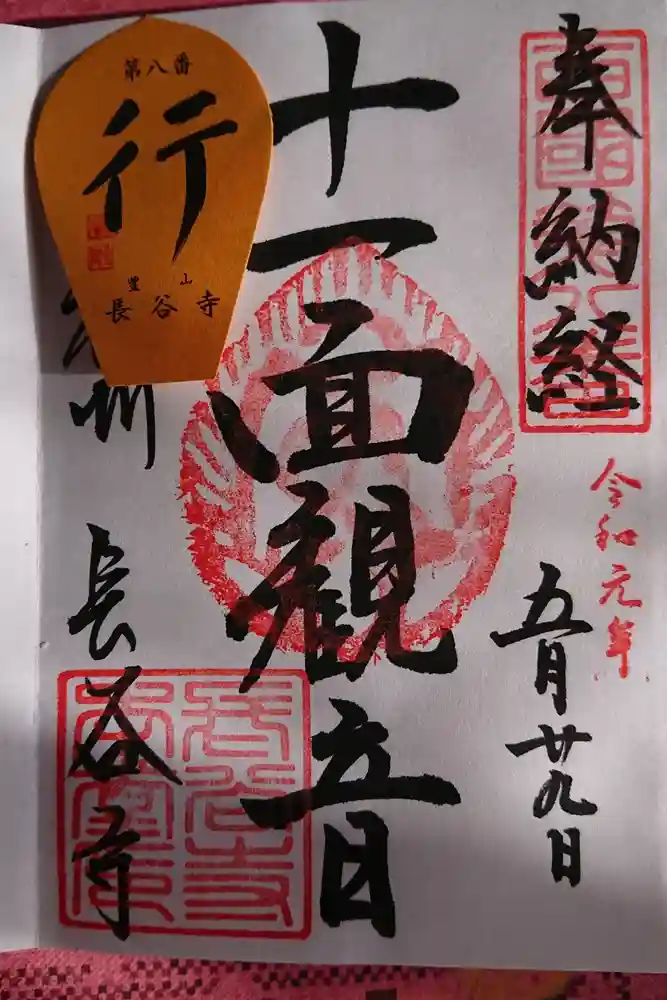 奉納経
令和元年
五月廿九日
十一面観音
州 長谷寺
第八番
行
豊山
長谷寺